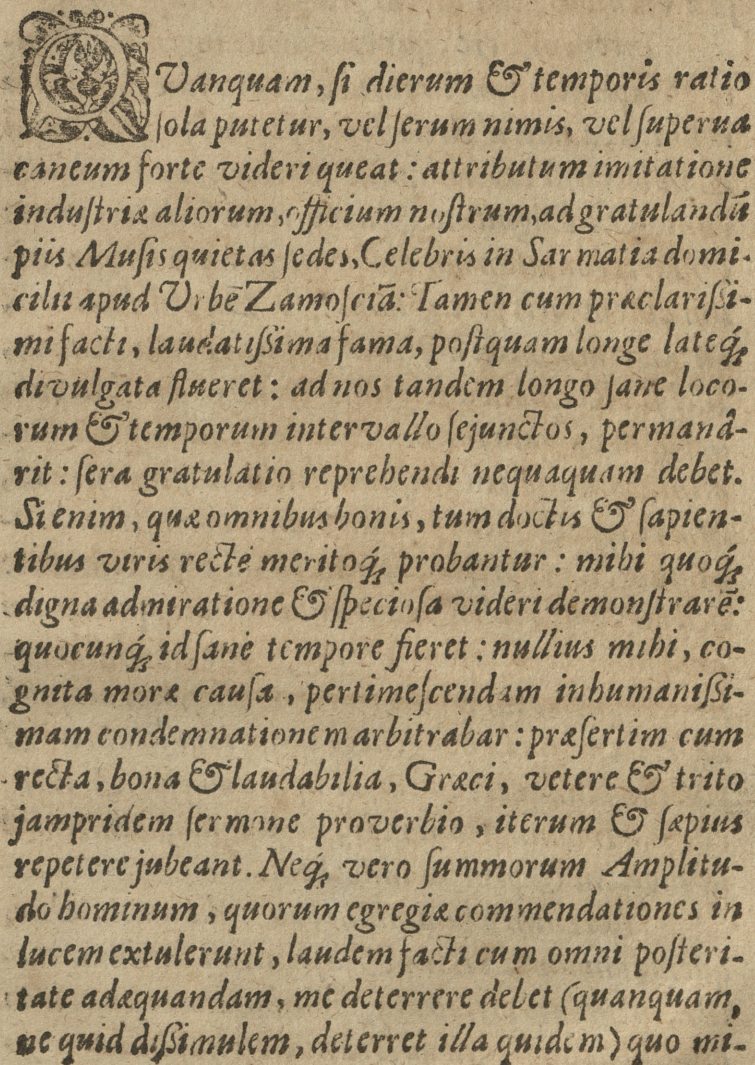 QVanquam, ſi dierum & temporis ratio
ſola putetur, vel ſerum nimis, vel ſuperua
caneum forte videri queat: attributum imitatione
induſtriæ aliorum, officium noſtrum, ad gratulandū
piis Muſis quietas ſedes, Celebris in Sarmatia domi-
cilii apud Vrbē Zamoſciā: Tamen cum præclariſsi-
mi facti, laudatiſsima fama, poſtquam longe lateq́;
divulgata flueret: ad nos tandem longo ſane loco-
rum & temporum intervallo ſejunctos, permanâ-
rit: ſera gratulatio reprehendi nequaquam debet.
Si enim, quæ omnibus bonis, tum doctis & ſapien-
tibus viris rectè meritoq́; probantur: mihi quoq́;
digna admiratione & ſpecioſa videri demonſtrarē:
quocunq́; id ſanè tempore fieret: nullius mihi, co-
gnita moræ cauſa, pertimeſcendam inhumaniſsi-
mam condemnationem arbitrabar: præſertim cum
recta, bona & laudabilia, Græci, vetere & trito
jampridem ſermone proverbio, iterum & ſæpius
repetere jubeant. Neq́; vero ſummorum Amplitu-
do hominum, quorum egregiæ commendationes in
lucem extulerunt, laudem facti cum omni poſteri-
tate adæquandam, me deterrere debet (quanquam,
ne quid diſsimulem, deterret illa quidem) quo mi-